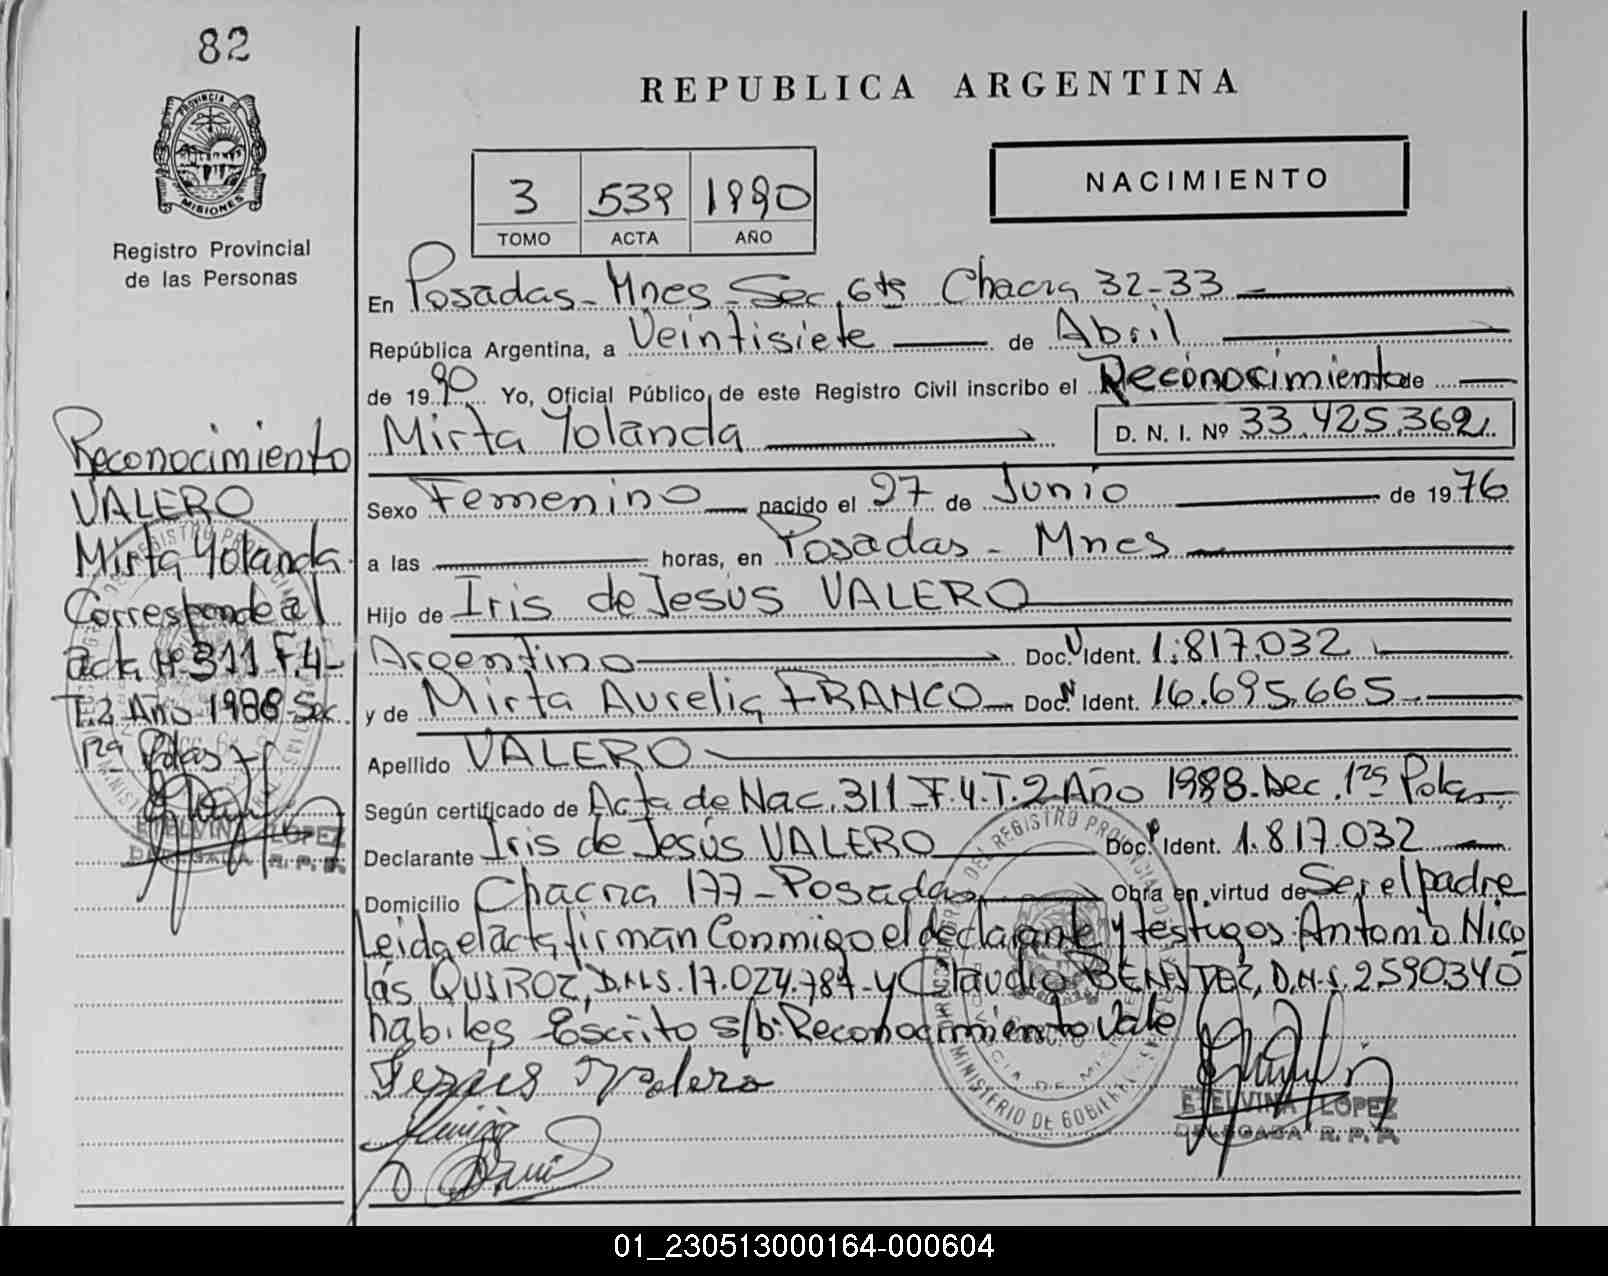 82
REPUBLICA ARGENTINA
PROVINCIA DE
MISIONES
Registro Provincial
de las Personas
3 539 1990
TOMO ACTA AÑO
NACIMIENTO
En Posadas - Mnes - Sec. 6ta Chacra 32-33
República Argentina, a Veintisiete de Abril
de 1990 Yo, Oficial Público, de este Registro Civil inscribo el Reconocimiento de
Mirta Yolanda D. N. I. Nº 33.425.362
Sexo Femenino nacido el 27 de Junio de 1976
a las horas, en Posadas - Mnes
Hijo de Iris de Jesús VALERO
Argentino Doc. Ident. 1.817.032
y de Mirta Aurelia FRANCO Doc. Ident. 16.695.665
Apellido VALERO
Según certificado de Acta de Nac. 311 - F.4 - T.2 - Año 1988 - Sec. 1ra Pdas
Declarante Iris de Jesús VALERO Doc. Ident. 1.817.032
Domicilio Chacra 177 - Posadas Obra en virtud de Ser el padre
Leída el acta, firman Conmigo el declarante y testugos: Antonio Nico
lás QUIROZ, D.N.I. 17.024.787 - y Claudio BENITEZ, D.N.I. 2.590.340
hábiles - Escrito s/b: Reconocimiento Vale
Jesus Valero
ETELVINA LOPEZ
DELEGADA R. P. P.
Reconocimiento
VALERO
Mirta Yolanda
Corresponde al
acta Nº 311 F.4 -
T.2 Año 1988 - Sec.
1ra Pdas
ETELVINA LOPEZ
DELEGADA R. P. P.
01_230513000164-000604